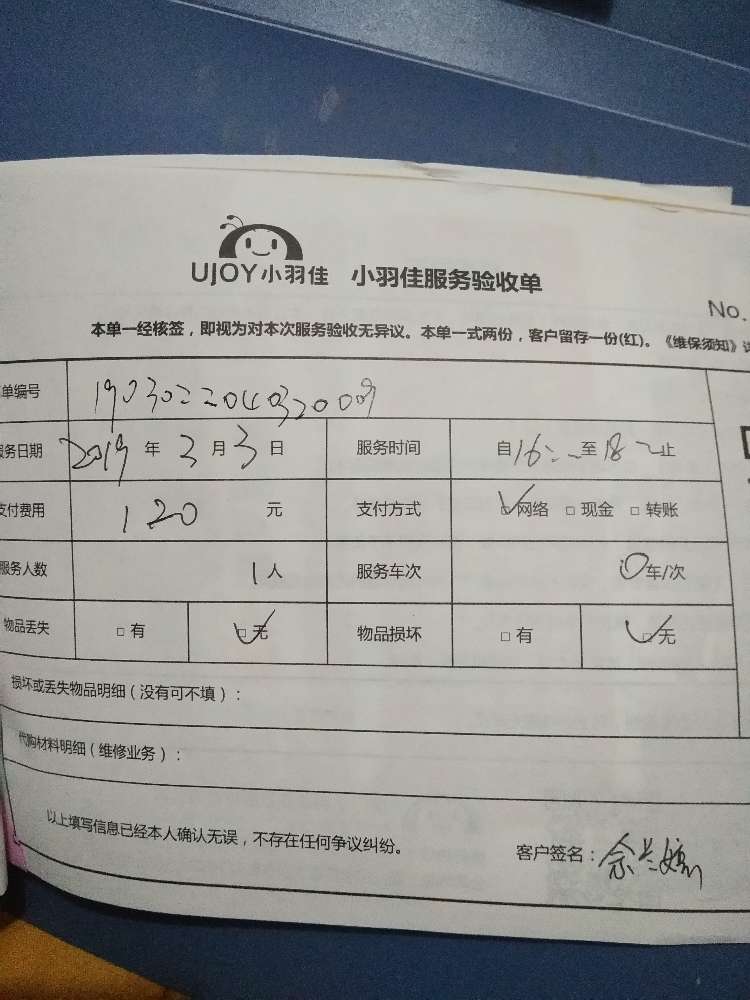 UJOY小羽佳 小羽佳服务验收单
No.
本单一经核签，即视为对本次服务验收无异议。本单一式两份，客户留存一份(红)。《维保须知》
单编号 190302204032009
服务日期 2019年3月3日 服务时间 自16:00至18:00止
支付费用 120元 支付方式 ☑网络 □现金 □转账
服务人数 1人 服务车次 0车/次
物品丢失 □有 ☑无 物品损坏 □有 ☑无
损坏或丢失物品明细（没有可不填）：
代购材料明细（维修业务）：
以上填写信息已经本人确认无误，不存在任何争议纠纷。
客户签名：